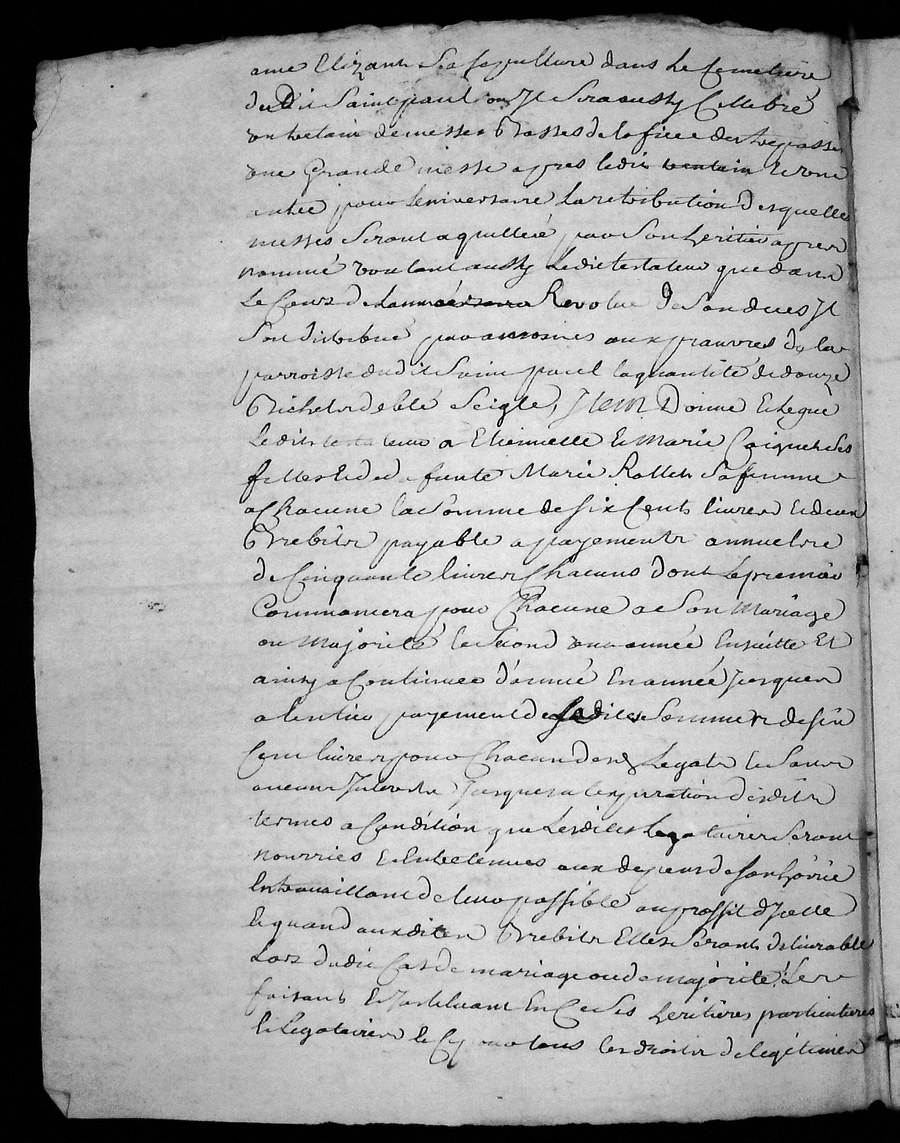 ame Elizant sa sepulture dans le Cemetiere
du Dit Saint paul ou Jl sera aussy Cellebré
de messes Basses de loffice des trepassés
une Grande messe apres ledit trentain et une
autre pour Leniversaire la retribution desquelles
messes seront aquitteé par son heritier apres
nommé voulant aussy ledit testateur que dans
Le Cours de Revolue de son deces Jl
soit distribué par aumosnes aux pauvres de la
parroisse dudit Saint paul la quantité de douze
Bichets de blé Seigle, Jtem Donne et Legue
Ledit testateur a Etiennette et Marie ses
filles et de defunte Marie Rollet sa femme
a Chacune la somme de six Cents livres et deux
Brebits payable a payements annuels
de Cinquante livres Chacuns dont le premier
Commancera pour Chacune a son Mariage
ou Majorité le second une année Ensuitte Et
ainsy a Continuer d'année En année Jusques
a lentier payement desdites sommes de six
Cent livres pour Chacun desd Legats et sans
aucuns Jnterests Jusques a lexpiration desdits
termes a Condition que Lesdites Legatairesses seront
nourries et Entretenues aux depens de son herie
En travaillant de leur possible au proffit dJcelle
Et quand auxdites Brebits Elles seront delivrable
Lors dudit Cas de mariage ou de majorité Les
faisant et Jnstituant En Ce Ses heritieres particulieres
et Legataires et Ce pour tous les droits de legitimes